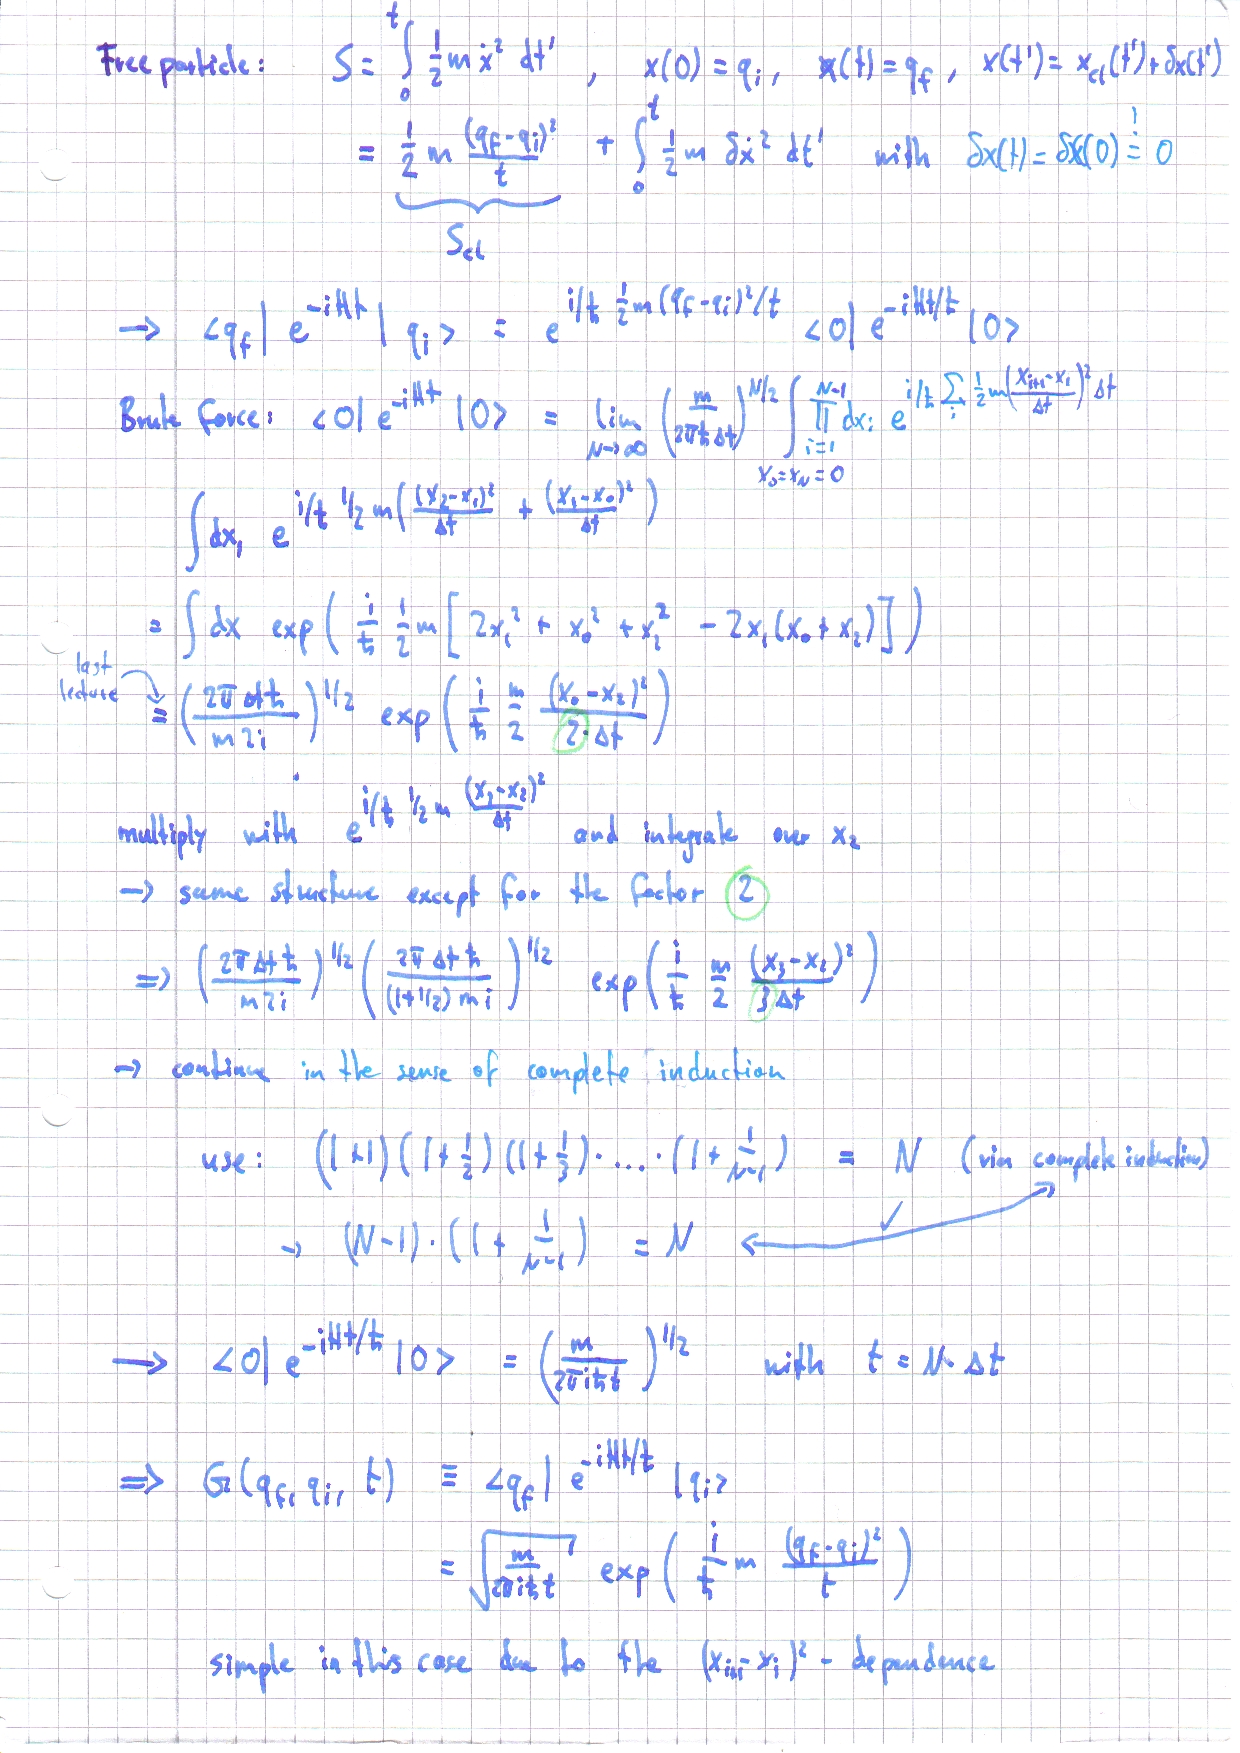 Free particle: S = ∫₀ᵗ ½ m ẋ² dt' , x(0) = q_i, x(t) = q_f, x(t') = x_cl(t') + δx(t')
= ½ m (q_f - q_i)²/t + ∫₀ᵗ ½ m δẋ² dt' with δx(t) = δx(0) =! 0
S_cl
→ <q_f| e^{-iHt} |q_i> = e^{i/ħ ½ m (q_f - q_i)²/t} <0| e^{-iHt/ħ} |0>
Brute force: <0| e^{-iHt} |0> = lim_{N→∞} (m/(2πħΔt))^{N/2} ∫_{x₀=x_N=0} ∏_{i=1}^{N-1} dx_i e^{i/ħ Σ_i ½ m ((x_{i+1} - x_i)/Δt)² Δt}
∫ dx₁ e^{i/ħ 1/2 m ((x₂ - x₁)²/Δt + (x₁ - x₀)²/Δt)}
= ∫ dx exp( i/ħ ½ m [ 2x₁² + x₀² + x₂² - 2x₁(x₀ + x₂) ] )
last lecture
= (2πΔtħ/(m2i))^{1/2} exp( i/ħ m/2 (x₀ - x₂)²/(2·Δt) )
multiply with e^{i/ħ 1/2 m (x₃ - x₂)²/Δt} and integrate over x₂
→ same structure except for the factor 2
⇒ (2πΔtħ/(m2i))^{1/2} (2πΔtħ/((1+1/2)mi))^{1/2} exp( i/ħ m/2 (x₃ - x₂)²/(3Δt) )
→ continue in the sense of complete induction
use: (1+1)(1+½)(1+⅓)·...·(1+1/(N-1)) = N (via complete induction)
→ (N-1)·(1+1/(N-1)) = N ✓
→ <0| e^{-iHt/ħ} |0> = (m/(2πiħt))^{1/2} with t = N·Δt
⇒ G(q_f, q_i, t) ≡ <q_f| e^{-iHt/ħ} |q_i>
= √(m/(2πiħt)) exp( i/ħ m (q_f - q_i)²/t )
simple in this case due to the (x_{i+1} - x_i)² - dependence